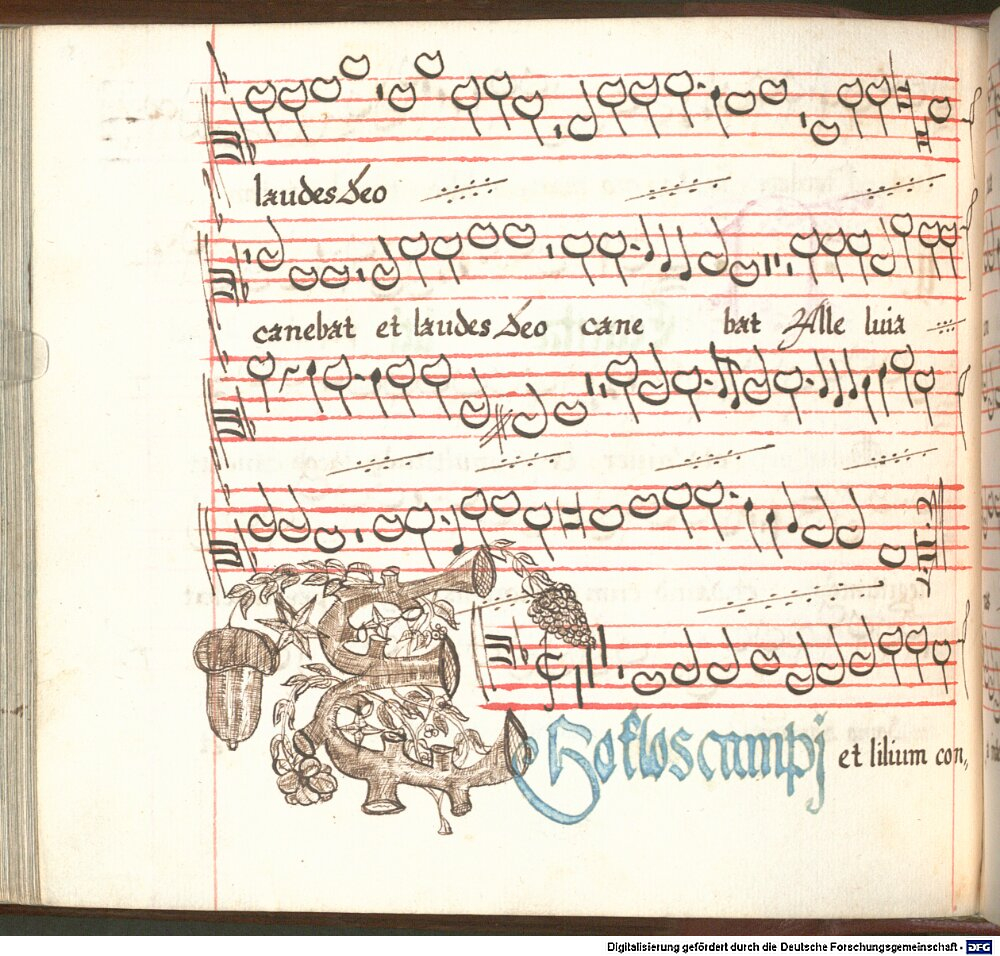 laudes Deo
canebat et laudes Deo cane bat Alle luia
Ego flos campi et lilium con,,
Digitalisierung gefördert durch die Deutsche Forschungsgemeinschaft - DFG